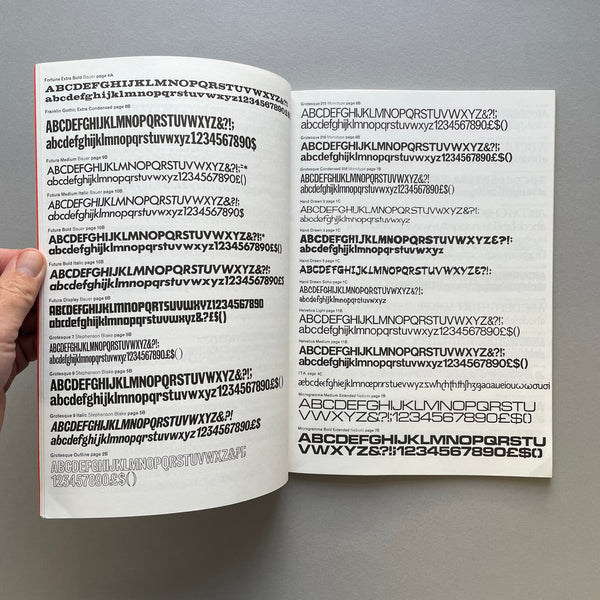 Fortune Extra Bold Bauer page 4A
ABCDEFGHIJKLMNOPQRSTUVWXYZ&?!;
abcdefghijklmnopqrstuvwxyz1234567890£
Franklin Gothic Extra Condensed page 8B
ABCDEFGHIJKLMNOPQRSTUVWXYZ&?!;
abcdefghijklmnopqrstuvwxyz1234567890$
Futura Medium Bauer page 9B
ABCDEFGHIJKLMNOPQRSTUVWXYZ&?!;"*
abcdefghijklmnopqrstuvwxyz1234567890£()
Futura Medium Italic Bauer page 10B
ABCDEFGHIJKLMNOPQRSTUVWXYZ&?!;
abcdefghijklmnopqrstuvwxyz1234567890$
Futura Bold Bauer page 10B
ABCDEFGHIJKLMNOPQRSTUVWXYZ&?!;*
abcdefghijklmnopqrstuvwxyz1234567890£()
Futura Bold Italic page 10B
ABCDEFGHIJKLMNOPQRSTUVWXYZ&?!;
abcdefghijklmnopqrstuvwxyz1234567890£()
Futura Display Bauer page 6B
ABCDEFGHIJKLMNOPQRSTUVWXYZ1234567890
abcdefghijklmnopqrstuvwxyz&?£$()
Grotesque 7 Stephenson Blake page 5B
ABCDEFGHIJKLMNOPQRSTUVWXYZ&?!;
abcdefghijklmnopqrstuvwxyz1234567890£()
Grotesque 9 Stephenson Blake page 5B
ABCDEFGHIJKLMNOPQRSTUVWXYZ&?!;
abcdefghijklmnopqrstuvwxyz1234567890£$()
Grotesque 9 Italic Stephenson Blake page 5B
ABCDEFGHIJKLMNOPQRSTUVWXYZ&?!
abcdefghijklmnopqrstuvwxyz1234567890£$()
Grotesque Outline page 2B
ABCDEFGHIJKLMNOPQRSTUVWXYZ&?!;
1234567890£$()
Grotesque 215 Monotype page 6B
ABCDEFGHIJKLMNOPQRSTUVWXYZ&?!;
abcdefghijklmnopqrstuvwxyz1234567890£$()
Grotesque 216 Monotype page 6B
ABCDEFGHIJKLMNOPQRSTUVWXYZ&?!;
abcdefghijklmnopqrstuvwxyz1234567890£$()
Grotesque Condensed 318 Monotype page 7B
ABCDEFGHIJKLMNOPQRSTUVWXYZ&?!;
abcdefghijklmnopqrstuvwxyz1234567890£()
Hand Drawn page 1C
ABCDEFGHIJKLMNOPQRSTUVWXYZ&?!;
abcdefghijklmnopqrstuvwxyz
Hand Drawn page 1C
ABCDEFGHIJKLMNOPQRSTUVWXYZ&?!:
abcdefghijklmnopqrstuvwxyz
Hand Drawn page 1C
ABCDEFGHIJKLMNOPQRSTUVWXYZ?!:
Hand Drawn Soho page 1C
ABCDEFGHIJKLMNOPQRSTUVWXYZ&?!;
abcdefghijklmnopqrstuvwxyz
Helvetica Light page 11B
ABCDEFGHIJKLMNOPQRSTUVWXYZ&?!;
abcdefghijklmnopqrstuvwxyz1234567890£$()
Helvetica Medium page 11B
ABCDEFGHIJKLMNOPQRSTUVWXYZ&?!;
abcdefghijklmnopqrstuvwxyz1234567890£$()
I T A page 4C
Microgramma Medium Extended Nebiolo page 7B
ABCDEFGHIJKLMNOPQRSTU
VWXYZ&?!;1234567890£$()
Microgramma Bold Extended Nebiolo page 7B
ABCDEFGHIJKLMNOPQRSTU
VWXYZ&?!;1234567890£$()